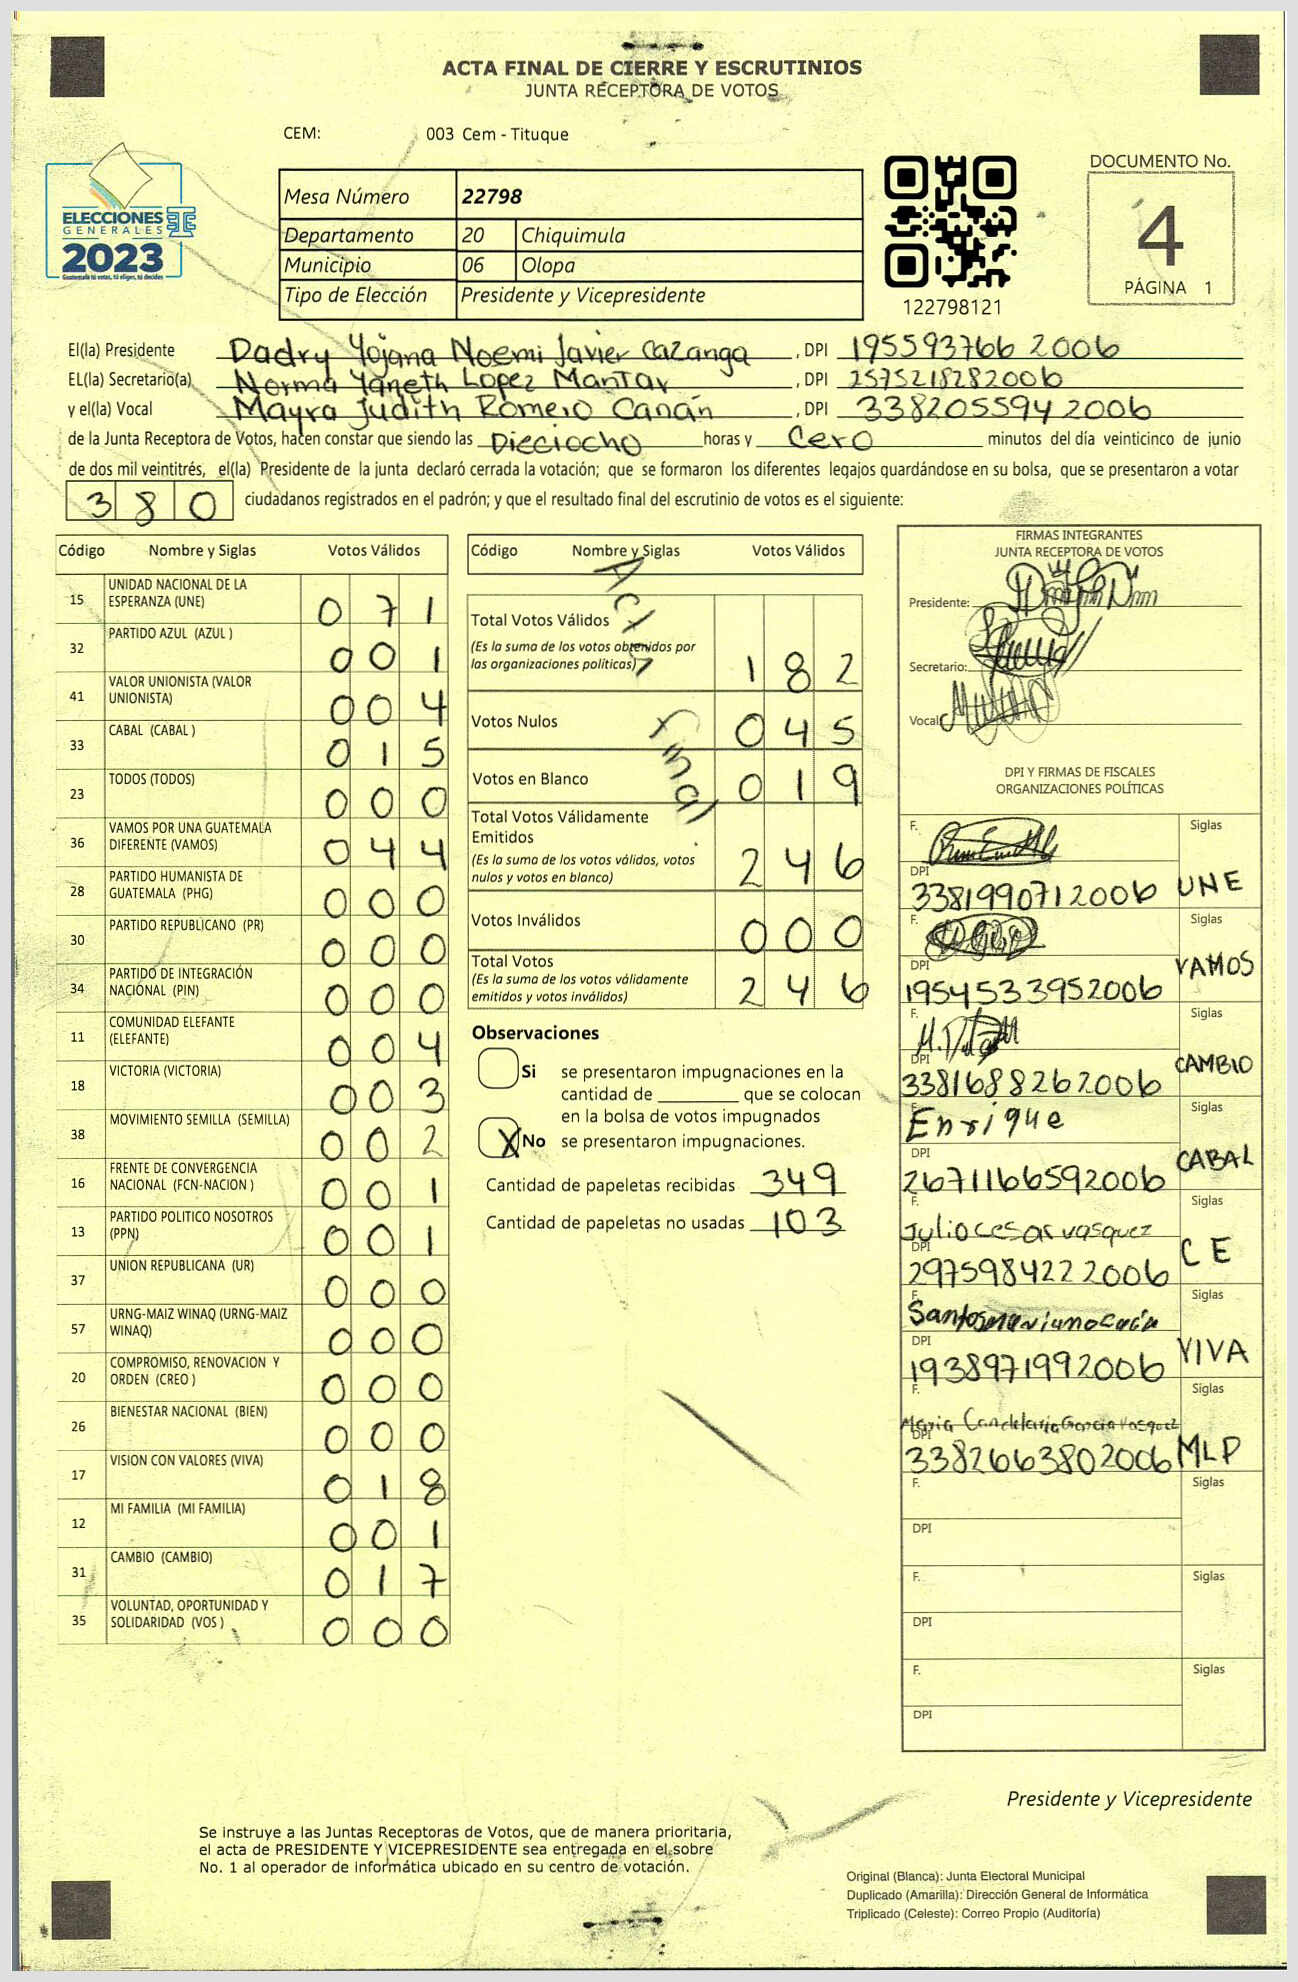 ACTA FINAL DE CIERRE Y ESCRUTINIOS
JUNTA RECEPTORA DE VOTOS
CEM: 003 Cem - Tituque
ELECCIONES
GENERALES
2023
Guatemala tú votas, tú eliges, tú decides
Mesa Número 22798
Departamento 20 Chiquimula
Municipio 06 Olopa
Tipo de Elección Presidente y Vicepresidente
122798121
DOCUMENTO No.
4
PÁGINA 1
El(la) Presidente Dadry Yojana Noemi Javier Cazanga , DPI 195593766 2006
EL(la) Secretario(a) Norma Yaneth Lopez Mantar , DPI 2575218282006
y el(la) Vocal Mayra Judith Romero Canán , DPI 338205594 2006
de la Junta Receptora de Votos, hacen constar que siendo las Dieciocho horas y Cero minutos del día veinticinco de junio
de dos mil veintitrés, el(la) Presidente de la junta declaró cerrada la votación; que se formaron los diferentes legajos guardándose en su bolsa, que se presentaron a votar
380 ciudadanos registrados en el padrón; y que el resultado final del escrutinio de votos es el siguiente:
Código Nombre y Siglas Votos Válidos
15 UNIDAD NACIONAL DE LA
ESPERANZA (UNE) 0 7 1
32 PARTIDO AZUL (AZUL ) 0 0 1
41 VALOR UNIONISTA (VALOR
UNIONISTA) 0 0 4
33 CABAL (CABAL ) 0 1 5
23 TODOS (TODOS) 0 0 0
36 VAMOS POR UNA GUATEMALA
DIFERENTE (VAMOS) 0 4 4
28 PARTIDO HUMANISTA DE
GUATEMALA (PHG) 0 0 0
30 PARTIDO REPUBLICANO (PR) 0 0 0
34 PARTIDO DE INTEGRACIÓN
NACIONAL (PIN) 0 0 0
11 COMUNIDAD ELEFANTE
(ELEFANTE) 0 0 4
18 VICTORIA (VICTORIA) 0 0 3
38 MOVIMIENTO SEMILLA (SEMILLA) 0 0 2
16 FRENTE DE CONVERGENCIA
NACIONAL (FCN-NACION ) 0 0 1
13 PARTIDO POLITICO NOSOTROS
(PPN) 0 0 1
37 UNION REPUBLICANA (UR) 0 0 0
57 URNG-MAIZ WINAQ (URNG-MAIZ
WINAQ) 0 0 0
20 COMPROMISO, RENOVACION Y
ORDEN (CREO ) 0 0 0
26 BIENESTAR NACIONAL (BIEN) 0 0 0
17 VISION CON VALORES (VIVA) 0 1 8
12 MI FAMILIA (MI FAMILIA) 0 0 1
31 CAMBIO (CAMBIO) 0 1 7
35 VOLUNTAD, OPORTUNIDAD Y
SOLIDARIDAD (VOS ) 0 0 0
Código Nombre y Siglas Votos Válidos
Acta final
Total Votos Válidos
(Es la suma de los votos obtenidos por
las organizaciones políticas) 1 8 2
Votos Nulos 0 4 5
Votos en Blanco 0 1 9
Total Votos Válidamente
Emitidos
(Es la suma de los votos válidos, votos
nulos y votos en blanco) 2 4 6
Votos Inválidos 0 0 0
Total Votos
(Es la suma de los votos válidamente
emitidos y votos inválidos) 2 4 6
Observaciones
Si se presentaron impugnaciones en la
cantidad de ________ que se colocan
en la bolsa de votos impugnados
X No se presentaron impugnaciones.
Cantidad de papeletas recibidas 349
Cantidad de papeletas no usadas 103
FIRMAS INTEGRANTES
JUNTA RECEPTORA DE VOTOS
Presidente:
Secretario:
Vocal
DPI Y FIRMAS DE FISCALES
ORGANIZACIONES POLÍTICAS
F. Siglas
DPI
3381990712006 UNE
F. Siglas
DPI
1954533952006 VAMOS
F. Siglas
DPI
3381688262006 CAMBIO
F. Enrique Siglas
DPI
2671166592006 CABAL
F. Julio Cesar vasquez Siglas
DPI
2975984222006 C E
F. Santos Siglas
DPI
1938971992006 VIVA
F. Maria Candelaria Garcia Vasquez Siglas
DPI
3382663802006 MLP
F. Siglas
DPI
F. Siglas
DPI
F. Siglas
DPI
Presidente y Vicepresidente
Se instruye a las Juntas Receptoras de Votos, que de manera prioritaria,
el acta de PRESIDENTE Y VICEPRESIDENTE sea entregada en el sobre
No. 1 al operador de informática ubicado en su centro de votación.
Original (Blanca): Junta Electoral Municipal
Duplicado (Amarilla): Dirección General de Informática
Triplicado (Celeste): Correo Propio (Auditoría)